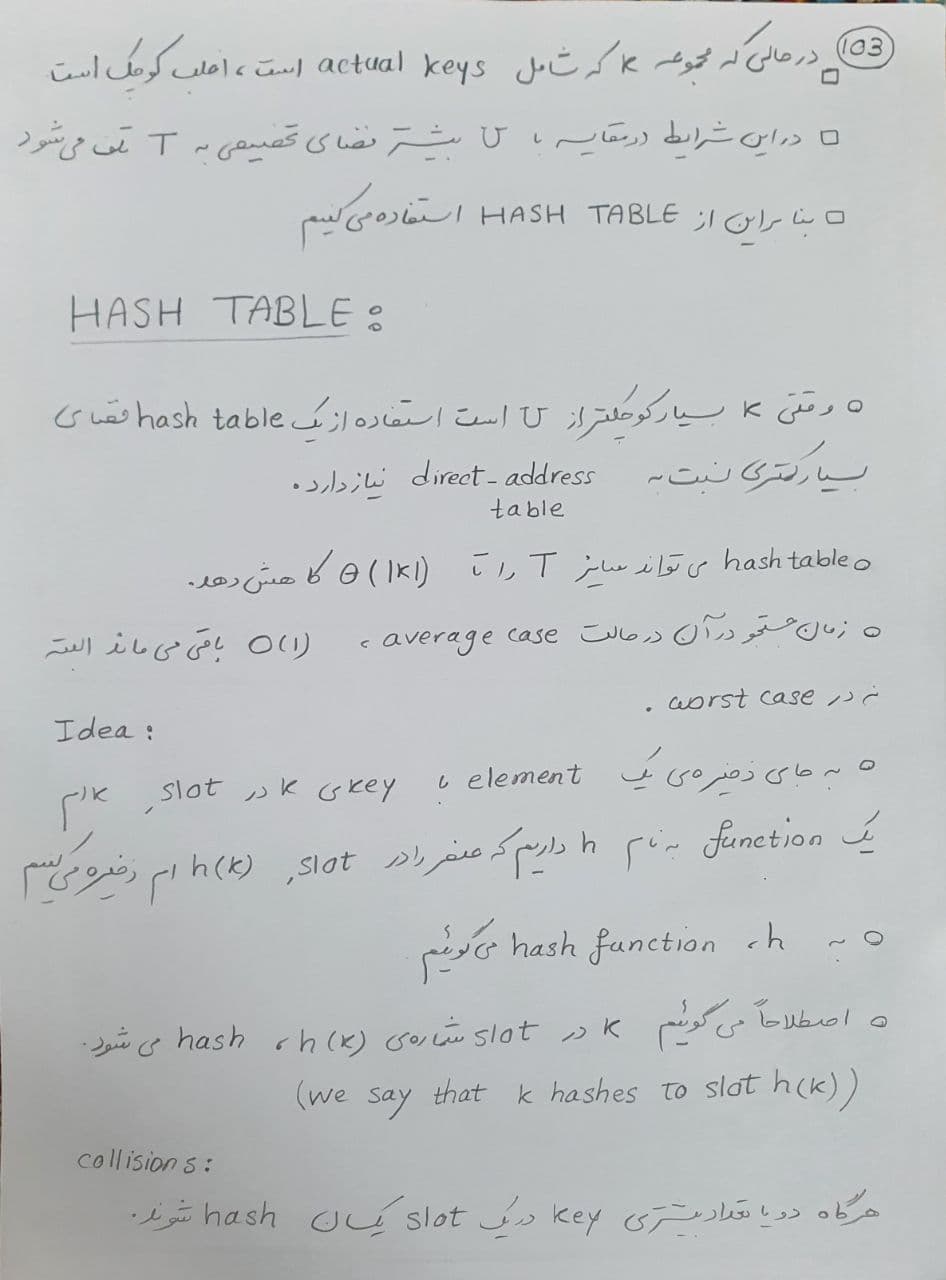 103
□ در حالی که مجموعه K که شامل actual keys است، اغلب کوچک است
□ در این شرایط در مقایسه با U بیشتر فضای تخصیصی به T تلف می‌شود
□ بنابراین از HASH TABLE استفاده می‌کنیم
HASH TABLE:
○ وقتی K بسیار کوچکتر از U است استفاده از یک hash table فضای
بسیار کمتری نسبت به direct-address نیاز دارد.
table
○ hash table می‌تواند سایز T را تا Θ(|K|) کاهش دهد.
○ زمان جستجو در آن در حالت average case، O(1) باقی می‌ماند البته
نه در worst case.
Idea:
○ به جای ذخیره‌ی یک element با key‌ی k در slot، k ام
یک function به نام h داریم که عنصر را در slot، h(k) ام ذخیره می‌کنیم
○ به h، hash function می‌گوئیم
○ اصطلاحاً می‌گوئیم k در slot شماره‌ی h(k)، hash می‌شود.
(we say that k hashes to slot h(k))
collisions:
هرگاه دو یا تعداد بیشتری key در یک slot یکسان hash شوند.